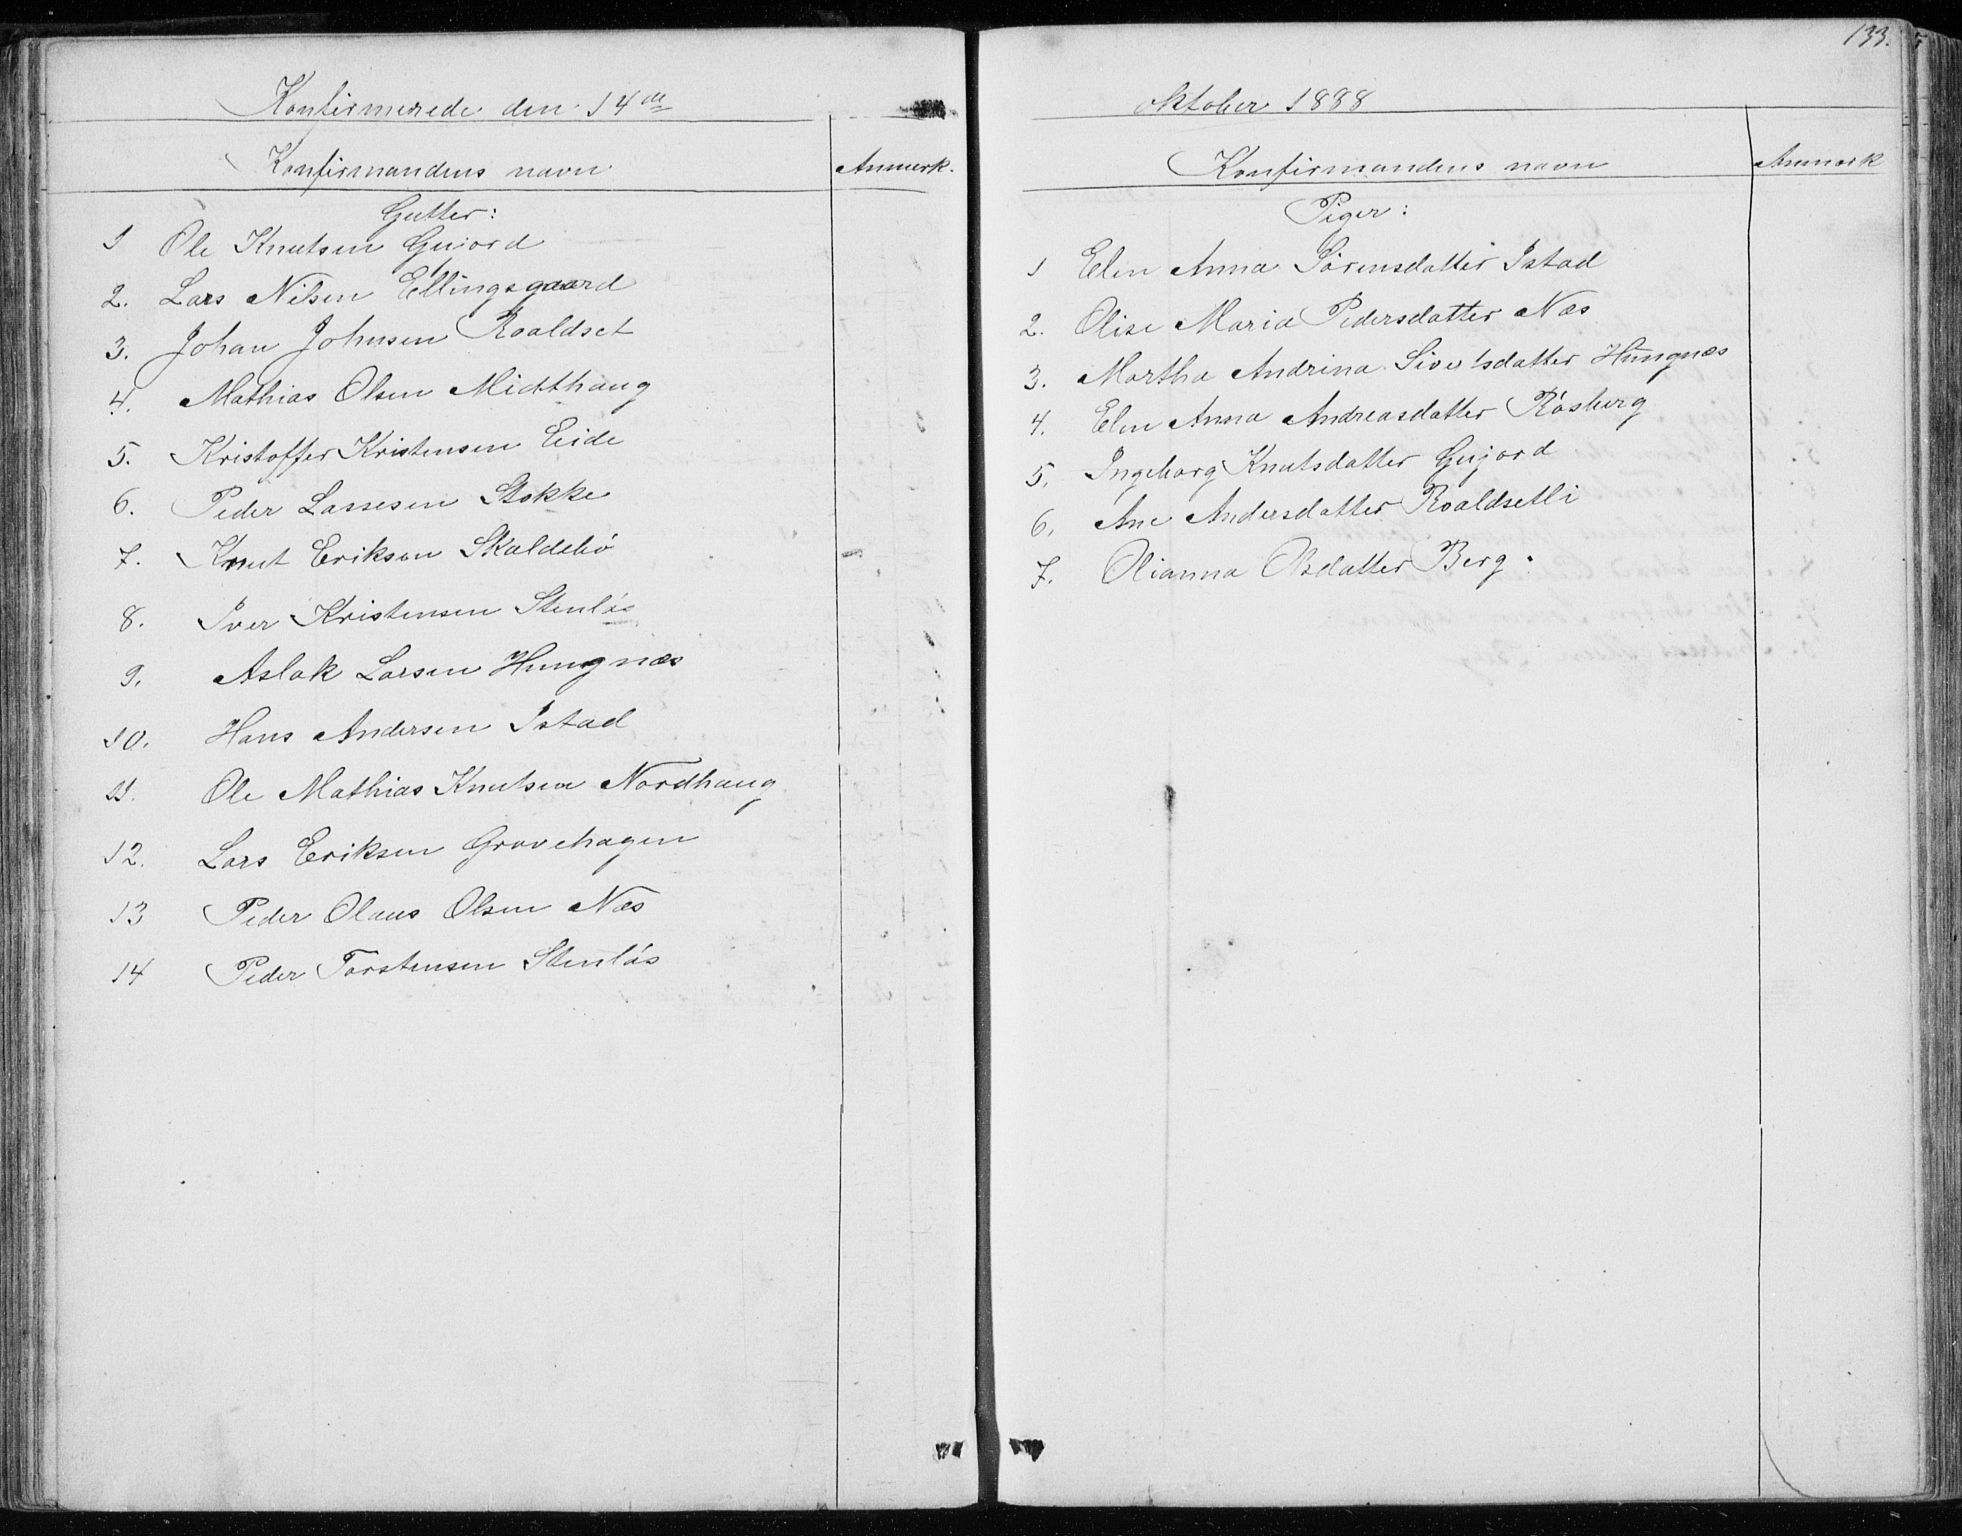 Konfirmerede den 14de
Konfirmandens navn Anmerk.
Gutter:
1 Ole Knutsen Gujord
2. Lars Nilsen Ellingsgaard
3. Johan Johnsen Roaldset
4. Mathias Olsen Midthaug
5. Kristoffer Kristensen Eide
6. Peder Lassesen Stokke
7. Knut Eriksen Skaldebø
8. Iver Kristensen Stenløs
9. Aslak Larsen Hungnæs
10. Hans Andersen Istad
11. Ole Mathias Knutsen Nordhaug
12. Lars Eriksen Grovehagen
13 Peder Olaus Olsen Næs
14 Peder Torstensen Stenløs
133.
oktober 1888
Konfirmandens navn Anmærk
Piger:
1 Elen Anna Sørensdatter Istad
2. Olise Maria Pedersdatter Næs
3. Martha Andrina Sivertsdatter Hungnæs
4. Elen Anna Andreasdatter Røsberg
5. Ingeborg Knutsdatter Gujord
6. Ane Andersdatter Roaldsetli
7. Olianna Olsdatter Berg.